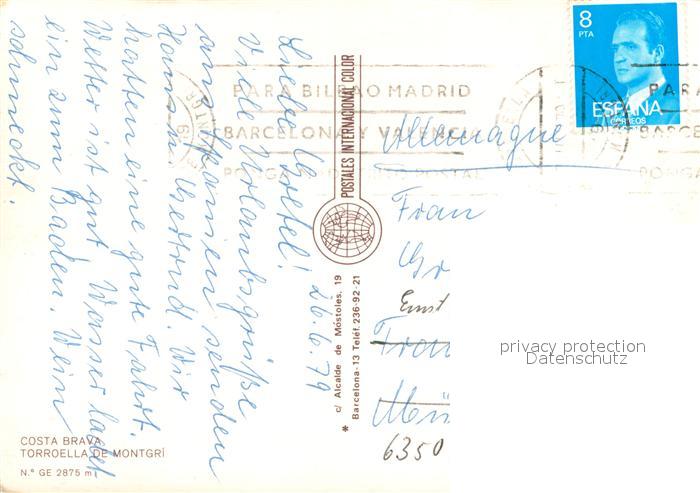 26.6.79
Liebe Gretel!
Viele Urlaubsgrüße
aus Spanien senden
Hanna Gertrud. Wir
hatten eine gute Fahrt.
Wetter ist gut. Wasser ladet
ein zum Baden. Wein
schmeckt.
COSTA BRAVA
TORROELLA DE MONTGRÍ
N.º GE 2875 m
POSTALES INTERNACIONAL COLOR
c/ Alcalde de Móstoles, 19
* Barcelona-13 Teléf. 236-92-21
8
PTA
ESPAÑA
CORREOS
PARA BILBAO MADRID
BARCELONA Y VALENCIA
PONGA POSTAL
PARA
BARCE
PONGA
Allemagne
Frau
Gr
Ernst
Fran
Mün
6350
privacy protection
Datenschutz